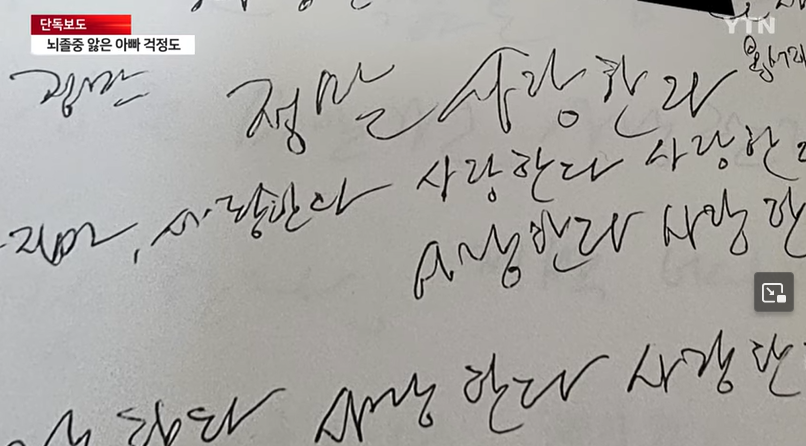 단독보도
YTN
뇌졸중 앓은 아빠 걱정도
정말
정말 사랑한다
사랑한다 사랑한다 사랑한
사랑한다 사랑한
한다 사랑한다 사랑한